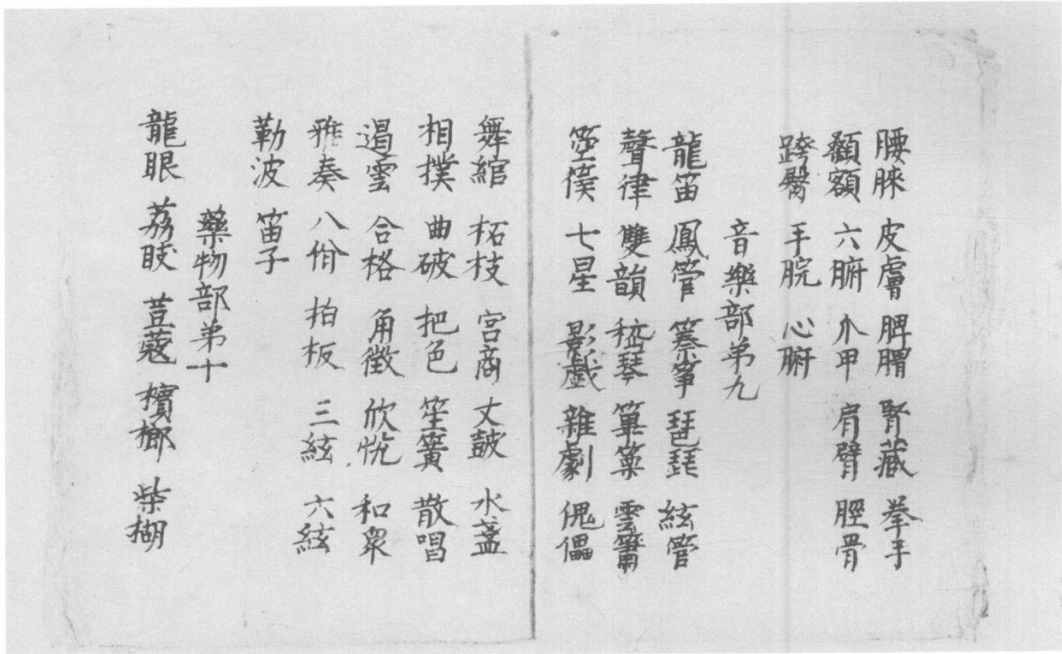 腰膝 皮膚 脾胃 腎藏 拳手
顙額 六腑 爪甲 肩臂 脛骨
跨臀 手腕 心腑
音樂部第九
龍笛 鳳管 𥱧箏 琵琶 絃管
聲律 雙韻 嵇琴 篳篥 雲簫
箜篌 七星 影戲 雜劇 傀儡
舞綰 柘枝 宮商 丈鼓 水盞
相撲 曲破 把色 笙簧 散唱
遏雲 合格 角徵 欣悦 和衆
雅奏 八佾 拍板 三絃 六絃
勒波 笛子
藥物部第十
龍眼 荔枝 荳蔻 檳榔 柴胡